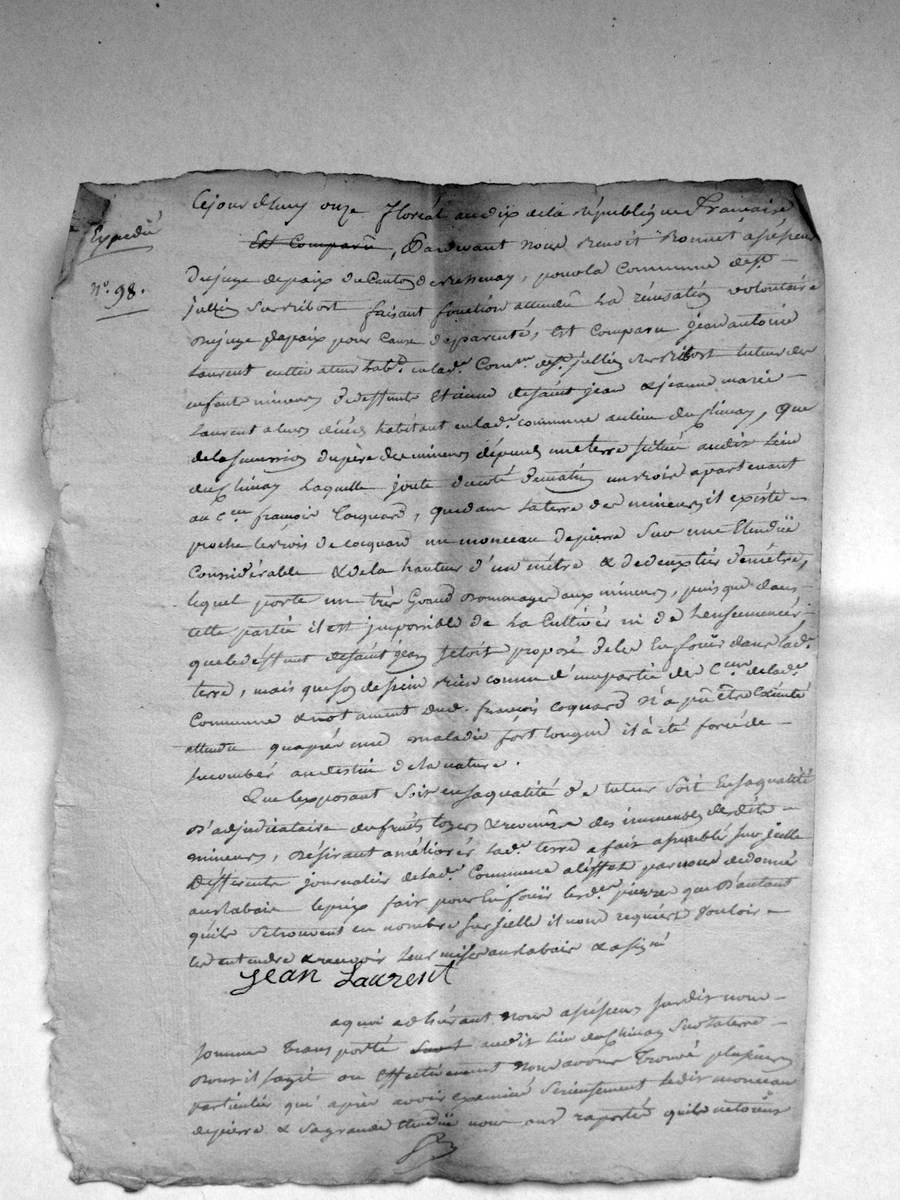 Cejourdhuy onze floréal an dix de la République Francaise
Expedié
Est Comparu, Pardevant nous Benoit Bonnet assesseur
n.º 98.
du juge de paix du Canton de , pour la Commune de st
jullien sur bibost faisant fonction attendu La récusation volontaire
du juge de paix pour Cause de parenté, Est Comparu jean antoine
Laurent cultivateur en lad.e Comm.e de st jullien sur bibost tuteur des
enfants mineurs de deffunts Etienne de saint jean & jeanne marie
Laurent a leurs décès habitant en lad.e commune au lieu du Chinay, que
de la succession du père des mineurs dépend une terre située audit Lieu
du Chinay Laquelle joute du coté du matin un bois apartenant
au C.en françois Coquard, que dans la terre des mineurs il existe
proche les bois de Cocquard un monceau de pierre Sur une Etendüe
Considérable & de la hauteur d'un mètre & de deux tiers de mètre,
lequel porte un très Grand dommage aux mineurs, puis que dans
cette partie il est jmpossible de La Cultiver ni de L'ensemencér
que led. deffunt de saint jean s'etoit proposé de les Enfouir dans lad.e
terre, mais que son dessein bien connu d'une partie des C.ens de lad.e
Commune & notament dud. françois Coquard n'a pu être Exécuté
attendu qu'après une maladie fort longue il a été forcé de
succomber au destin de la nature.
Que l'exposant soit en sa qualité de tuteur soit En sa qualité
D'adjudicataire des fruits loyers & revenus des immeubles desdits
mineurs, Désirant améliorer lad.e terre a fait assemblé sur jcelle
Différents journalier de lad.e Commune a l'effet par nous de donné
au rabais le prix fait pour Enfouir lesd.es pierres que D'autant
qu'ils se trouvent en nombre sur jcelle il nous requiert Vouloir
les entendre & recevoir Leur mises au rabais & a signé
Jean Laurent
a quoi adhérant nous assesseur susdit nous
somme transporté audit lieu du Chinay sur la terre
dont il sagit ou Effectivement nous avons trouvé plusieurs
particulier qui après avoir examiné sérieusement ledit monceau
de pierre & sa grande étendüe nous ont raporté qu'ils